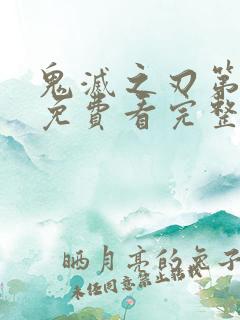 鬼滅之刃第
免費看完整
晒月亮的兔子
未经同意禁止转载